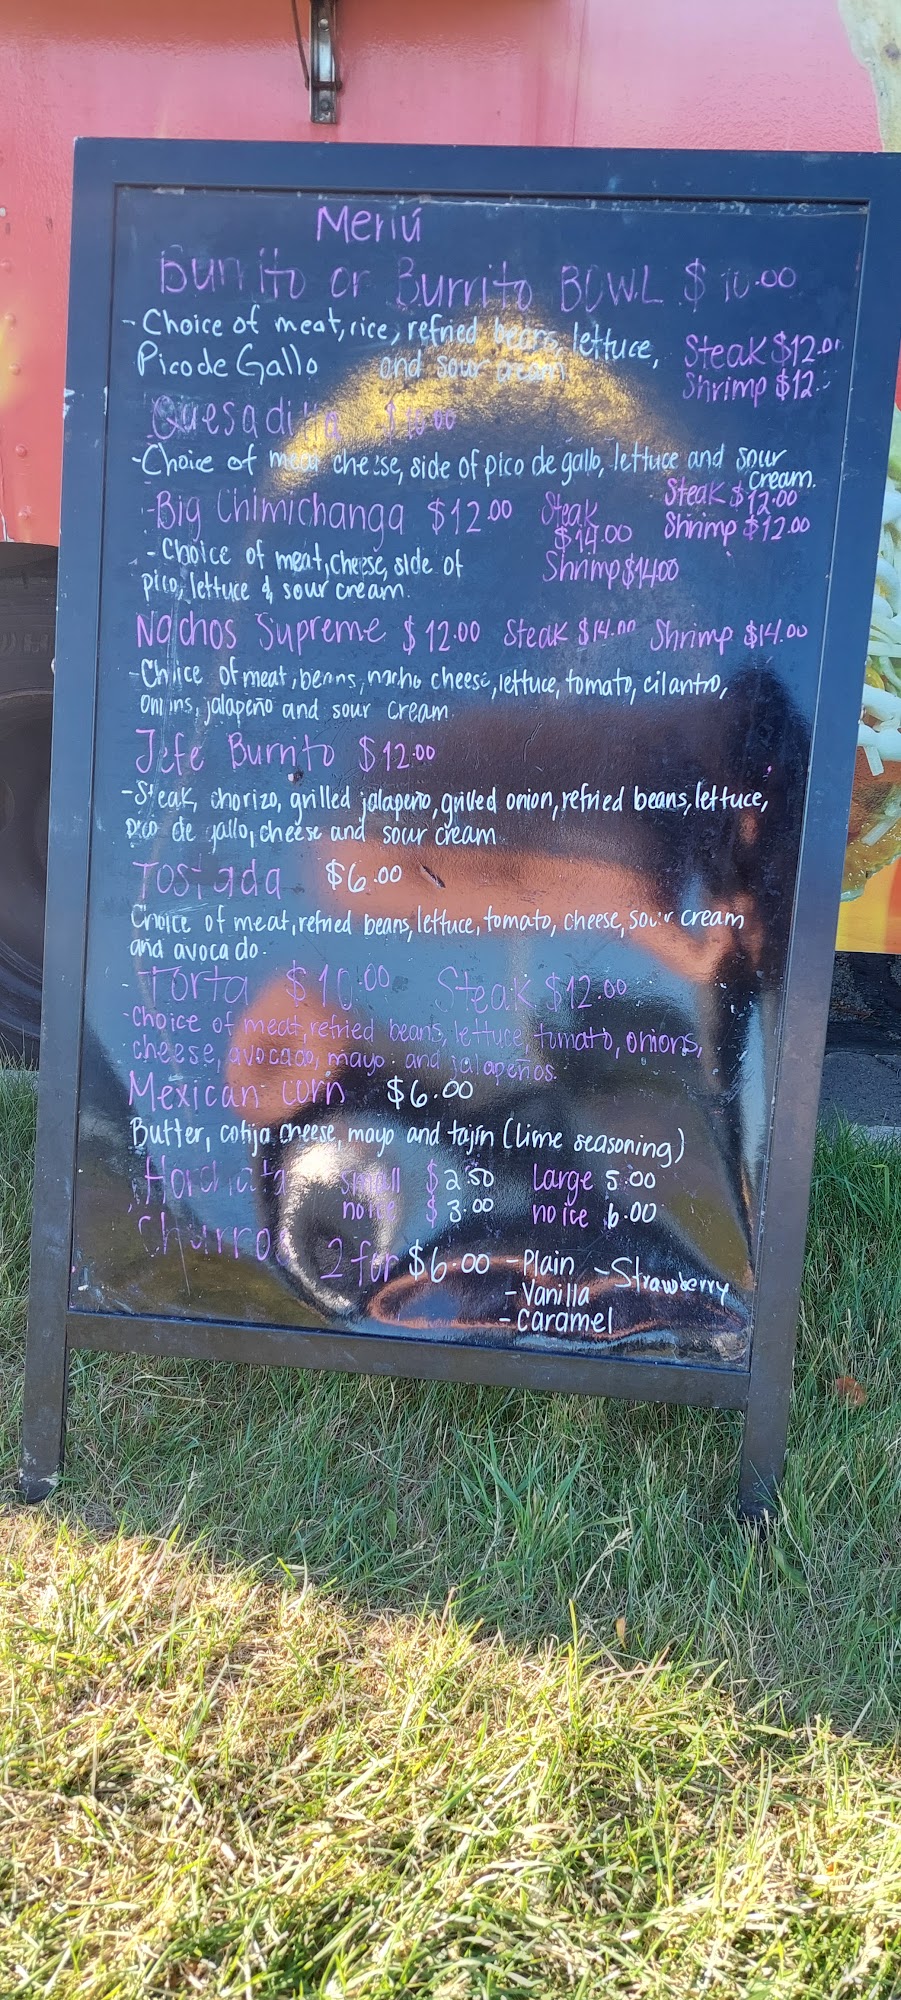 Menú
Burrito or Burrito BOWL $10.00
- Choice of meat, rice, refried beans, lettuce,
Pico de Gallo and sour cream
Steak $12.0
Shrimp $12.
Quesadilla $10.00
- Choice of meat cheese, side of pico de gallo, lettuce and sour
cream.
Steak $12.00
Shrimp $12.00
- Big Chimichanga $12.00 Steak
$14.00
Shrimp $14.00
- Choice of meat, cheese, side of
pico, lettuce & sour cream.
Nachos Supreme $12.00 Steak $14.00 Shrimp $14.00
- Choice of meat, beans, nacho cheese, lettuce, tomato, cilantro,
onions, jalapeño and sour cream.
Jefe Burrito $12.00
- Steak, chorizo, grilled jalapeño, grilled onion, refried beans, lettuce,
pico de gallo, cheese and sour cream.
Tostada $6.00
Choice of meat, refried beans, lettuce, tomato, cheese, sour cream
and avocado.
- Torta $10.00 Steak $12.00
- Choice of meat, refried beans, lettuce, tomato, onions,
cheese, avocado, mayo and jalapeños.
Mexican Corn $6.00
Butter, cotija cheese, mayo and tajín (lime seasoning)
Horchata small $2.50 Large 5.00
no ice $3.00 no ice 6.00
Churros 2 for $6.00 - Plain - Strawberry
- Vanilla
- Caramel